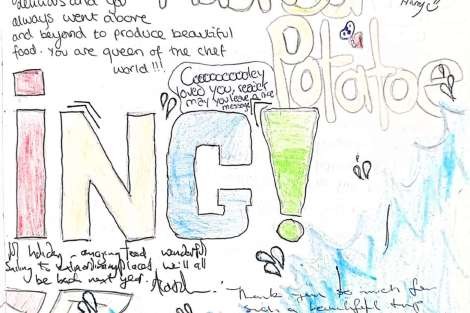 delicious and you
always went above
and beyond to produce beautiful
food. You are queen of the chef
world!!!
Potatoe
Coooooooooley
loved you,
may you leave a nice
message
iNG!
holiday - amazing food, wonderful
Sailing to extraordinary places, we'll all
be back next year.
Thank you so much for
such a beautiful trip